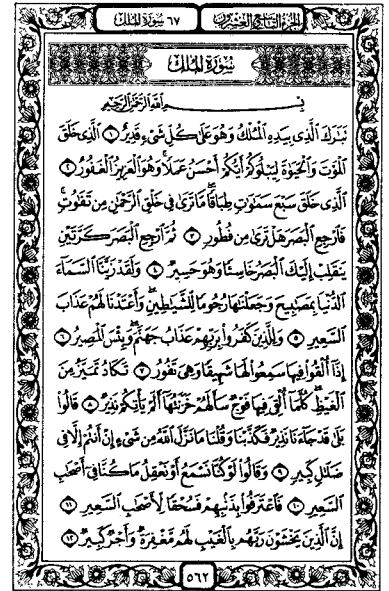 الجزء التاسع والعشرون
٦٧ سورة الملك
سُورَةُ المُلْكِ
بِسْمِ اللَّهِ الرَّحْمَٰنِ الرَّحِيمِ
تَبَٰرَكَ الَّذِى بِيَدِهِ الْمُلْكُ وَهُوَ عَلَىٰ كُلِّ شَىْءٍ قَدِيرٌ ١ الَّذِى خَلَقَ
الْمَوْتَ وَالْحَيَوٰةَ لِيَبْلُوَكُمْ أَيُّكُمْ أَحْسَنُ عَمَلًا وَهُوَ الْعَزِيزُ الْغَفُورُ ٢
الَّذِى خَلَقَ سَبْعَ سَمَٰوَٰتٍ طِبَاقًا مَّا تَرَىٰ فِى خَلْقِ الرَّحْمَٰنِ مِن تَفَٰوُتٍ
فَارْجِعِ الْبَصَرَ هَلْ تَرَىٰ مِن فُطُورٍ ٣ ثُمَّ ارْجِعِ الْبَصَرَ كَرَّتَيْنِ
يَنقَلِبْ إِلَيْكَ الْبَصَرُ خَاسِئًا وَهُوَ حَسِيرٌ ٤ وَلَقَدْ زَيَّنَّا السَّمَآءَ
الدُّنْيَا بِمَصَٰبِيحَ وَجَعَلْنَٰهَا رُجُومًا لِّلشَّيَٰطِينِ وَأَعْتَدْنَا لَهُمْ عَذَابَ
السَّعِيرِ ٥ وَلِلَّذِينَ كَفَرُوا بِرَبِّهِمْ عَذَابُ جَهَنَّمَ وَبِئْسَ الْمَصِيرُ ٦
إِذَآ أُلْقُوا فِيهَا سَمِعُوا لَهَا شَهِيقًا وَهِىَ تَفُورُ ٧ تَكَادُ تَمَيَّزُ مِنَ
الْغَيْظِ كُلَّمَآ أُلْقِىَ فِيهَا فَوْجٌ سَأَلَهُمْ خَزَنَتُهَآ أَلَمْ يَأْتِكُمْ نَذِيرٌ ٨ قَالُوا
بَلَىٰ قَدْ جَآءَنَا نَذِيرٌ فَكَذَّبْنَا وَقُلْنَا مَا نَزَّلَ اللَّهُ مِن شَىْءٍ إِنْ أَنتُمْ إِلَّا فِى
ضَلَٰلٍ كَبِيرٍ ٩ وَقَالُوا لَوْ كُنَّا نَسْمَعُ أَوْ نَعْقِلُ مَا كُنَّا فِىٓ أَصْحَٰبِ
السَّعِيرِ ١٠ فَاعْتَرَفُوا بِذَنۢبِهِمْ فَسُحْقًا لِّأَصْحَٰبِ السَّعِيرِ ١١
إِنَّ الَّذِينَ يَخْشَوْنَ رَبَّهُم بِالْغَيْبِ لَهُم مَّغْفِرَةٌ وَأَجْرٌ كَبِيرٌ ١٢
٥٦٢